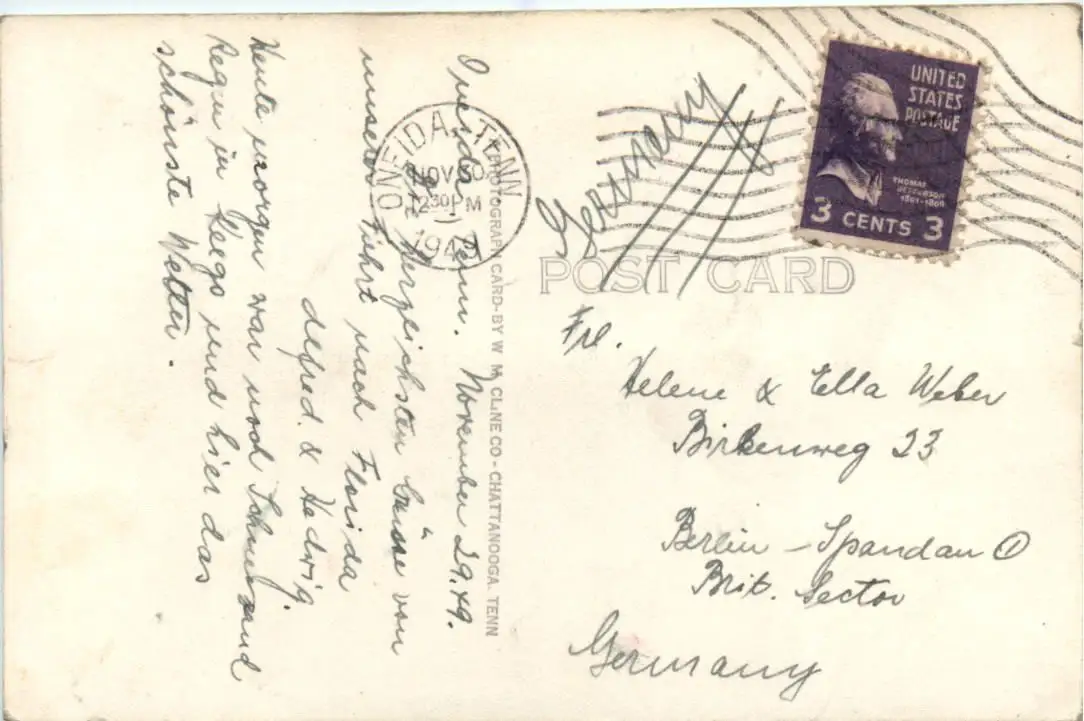 Oneida Tenn. November 29.49.
Die herzlichsten Grüsse von
unserer Fahrt nach Florida
& Hedwig.
Heute morgen war noch Schnee und
Regen in und hier das
schönste Wetter.
ONEIDA, TENN
NOV 30
12 30 PM
1949
PHOTOGRAPH CARD-BY W. M. CLINE CO-CHATTANOOGA. TENN
Germany
UNITED
STATES
POSTAGE
THOMAS
JEFFERSON
1801-1809
3 CENTS 3
POST CARD
Frl.
Helene & Ella Weber
Birkenweg 23
Berlin - Spandau ①
Brit. Sector
Germany